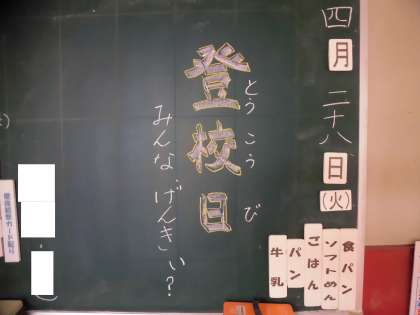 四月二十八日(火)
登校日
とうこうび
みんな、げんきぃ?
食パン
ソフトめん
ごはん
パン
牛乳